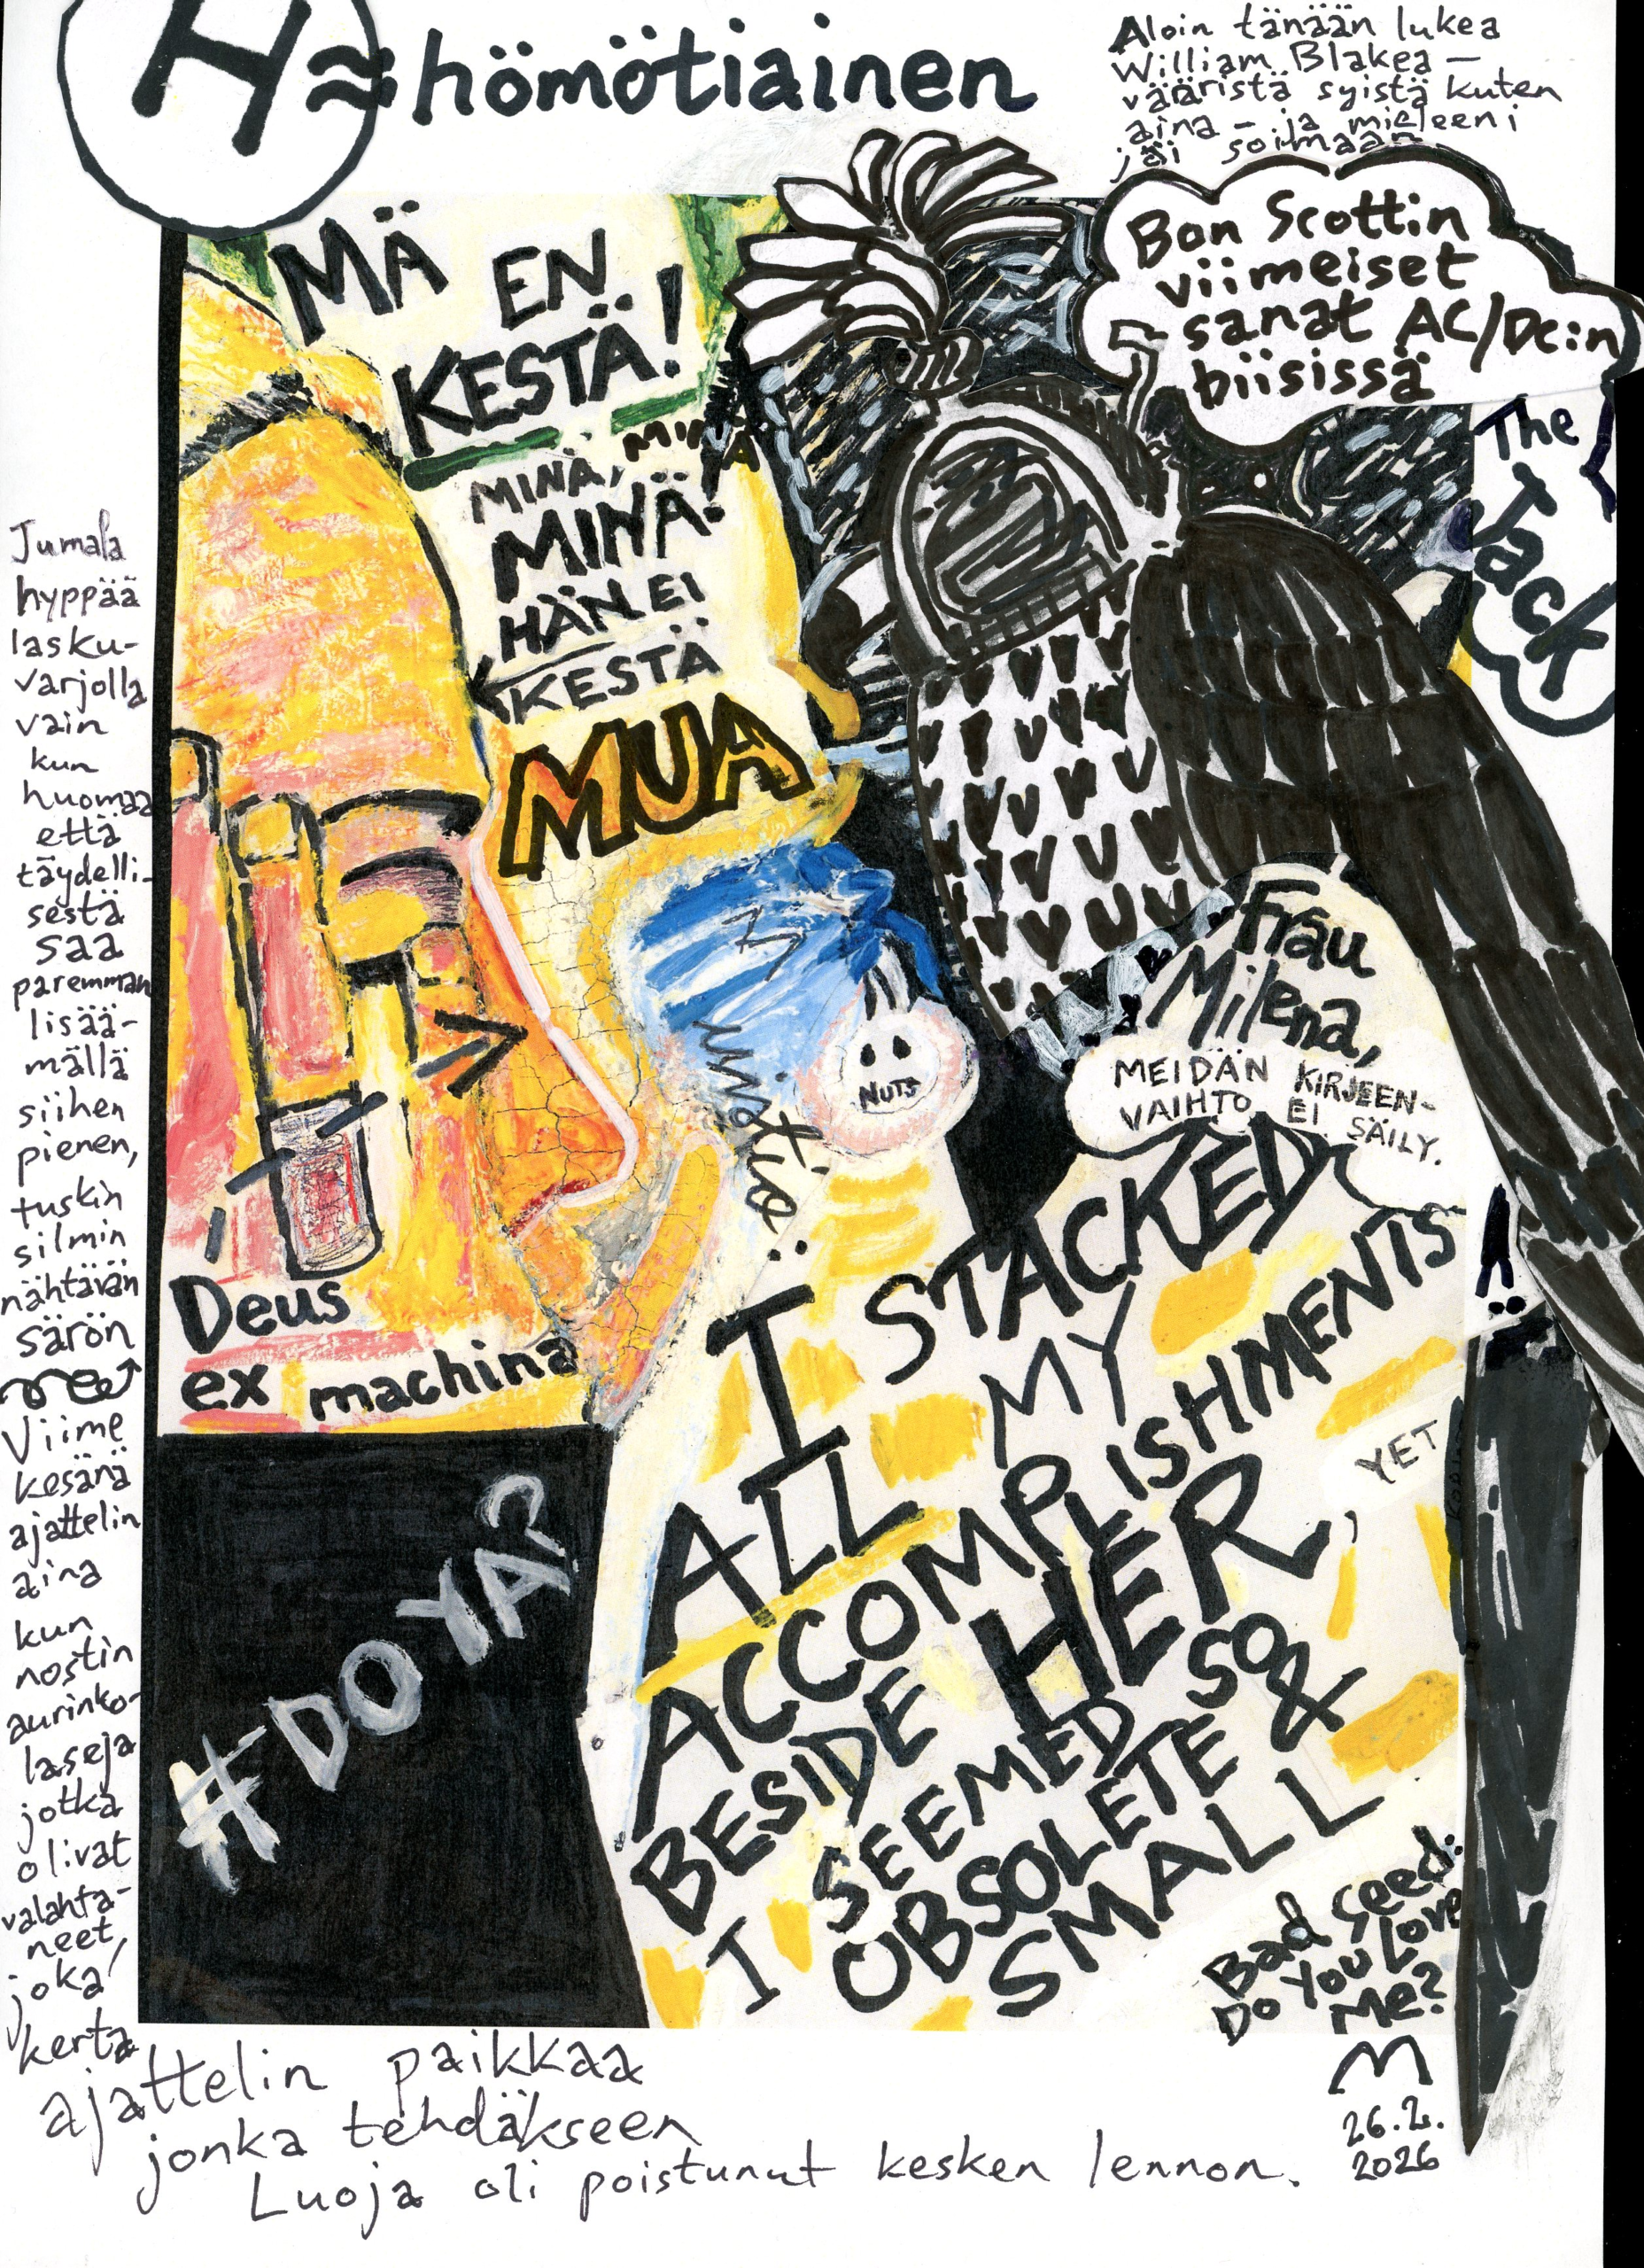 H ≈ hömötiainen
Aloin tänään lukea
William Blakea –
vääristä syistä kuten
aina – ja mieleeni
jäi soimaan
Bon Scottin
viimeiset
sanat AC/DC:n
biisissä
The
Jack
MÄ EN
KESTÄ!
MINÄ, MINÄ
MINÄ!
HÄN EI
KESTÄ
MUA
Jumala
hyppää
lasku-
varjolla
vain
kun
huomaa
että
täydelli-
sestä
saa
paremman
lisää-
mällä
siihen
pienen,
tuskin
silmin
nähtävän
särön
Viime
kesänä
ajattelin
aina
kun
nostin
aurinko-
laseja
jotka
olivat
valahta-
neet,
joka
kerta
ajattelin paikkaa
jonka tehdäkseen
Luoja oli poistunut kesken lennon.
NUTS
Deus
ex machina
Frau
Milena,
MEIDÄN KIRJEEN-
VAIHTO EI SÄILY.
I STACKED
ALL MY
ACCOMPLISHMENTS
BESIDE HER,
YET
I SEEMED SO
OBSOLETE &
SMALL
#DO YA?
Bad Seed:
Do You Love
Me?
M
26.2.
2026